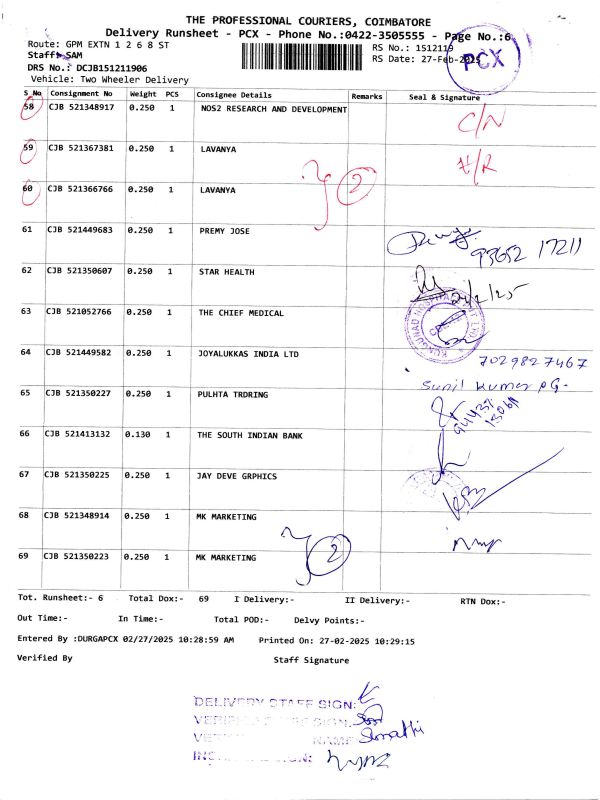 THE PROFESSIONAL COURIERS, COIMBATORE
Delivery Runsheet - PCX - Phone No.:0422-3505555 - Page No.:6
Route: GPM EXTN 1 2 6 8 ST
RS No.: 1512119
Staff: SAM
RS Date: 27-Feb-2025
PCX
DRS No.: DCJB151211906
Vehicle: Two Wheeler Delivery
S No Consignment No Weight PCS Consignee Details Remarks Seal & Signature
58 CJB 521348917 0.250 1 NOS2 RESEARCH AND DEVELOPMENT C/N
59 CJB 521367381 0.250 1 LAVANYA H/R
60 CJB 521366766 0.250 1 LAVANYA 2
61 CJB 521449683 0.250 1 PREMY JOSE 93652 17211
62 CJB 521350607 0.250 1 STAR HEALTH
63 CJB 521052766 0.250 1 THE CHIEF MEDICAL
64 CJB 521449582 0.250 1 JOYALUKKAS INDIA LTD 7029827467
Sunil Kumar PG-
65 CJB 521350227 0.250 1 PULHTA TRDRING
66 CJB 521413132 0.130 1 THE SOUTH INDIAN BANK
67 CJB 521350225 0.250 1 JAY DEVE GRPHICS
68 CJB 521348914 0.250 1 MK MARKETING
69 CJB 521350223 0.250 1 MK MARKETING 2
Tot. Runsheet:- 6 Total Dox:- 69 I Delivery:- II Delivery:- RTN Dox:-
Out Time:- In Time:- Total POD:- Delvy Points:-
Entered By :DURGAPCX 02/27/2025 10:28:59 AM Printed On: 27-02-2025 10:29:15
Verified By Staff Signature
DELIVERY STAFF SIGN:
SIGN:
NAME: Sumathi
SIGN: